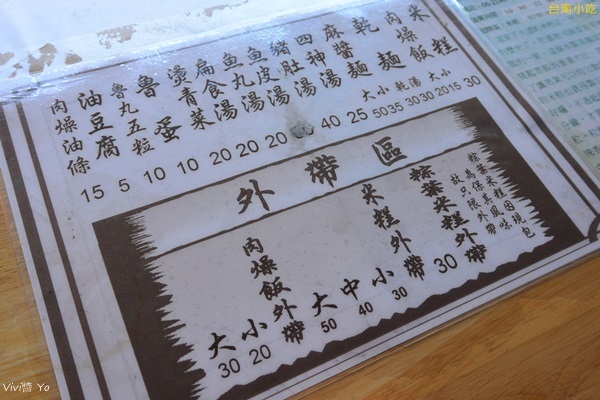 台南小吃
米糕
肉燥飯
乾麵
麻醬麵
四神湯
豬肚湯
魚皮湯
魚丸湯
扁食湯
燙青菜
魯蛋
魯丸五粒
油豆腐
肉燥油條
大小 乾湯 大小
15 5 10 10 20 20 20 40 25 50 35 30 30 20 15 30
外帶區
粽葉米糕因現包
為保其風味
故只限外帶
粽葉米糕外帶 30
米糕外帶
大 中 小
50 40 30
肉燥飯外帶
大 小
30 20
Vivi醬 Yo